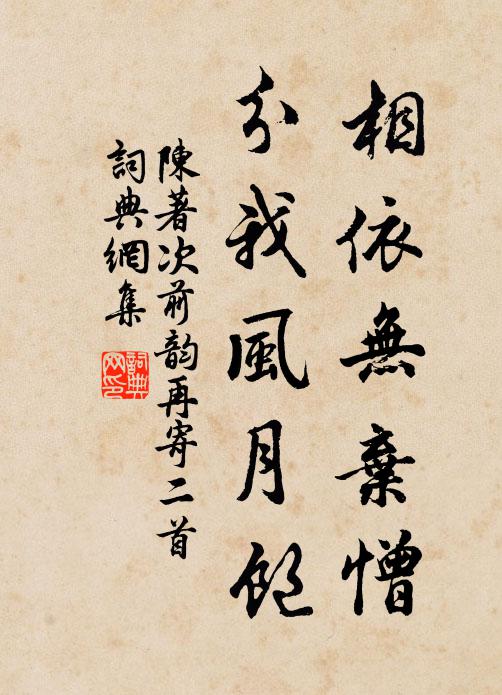 相依無棄憎
分我風月飽
陳著次前韵再寄二首
詞典網集
詞典网印